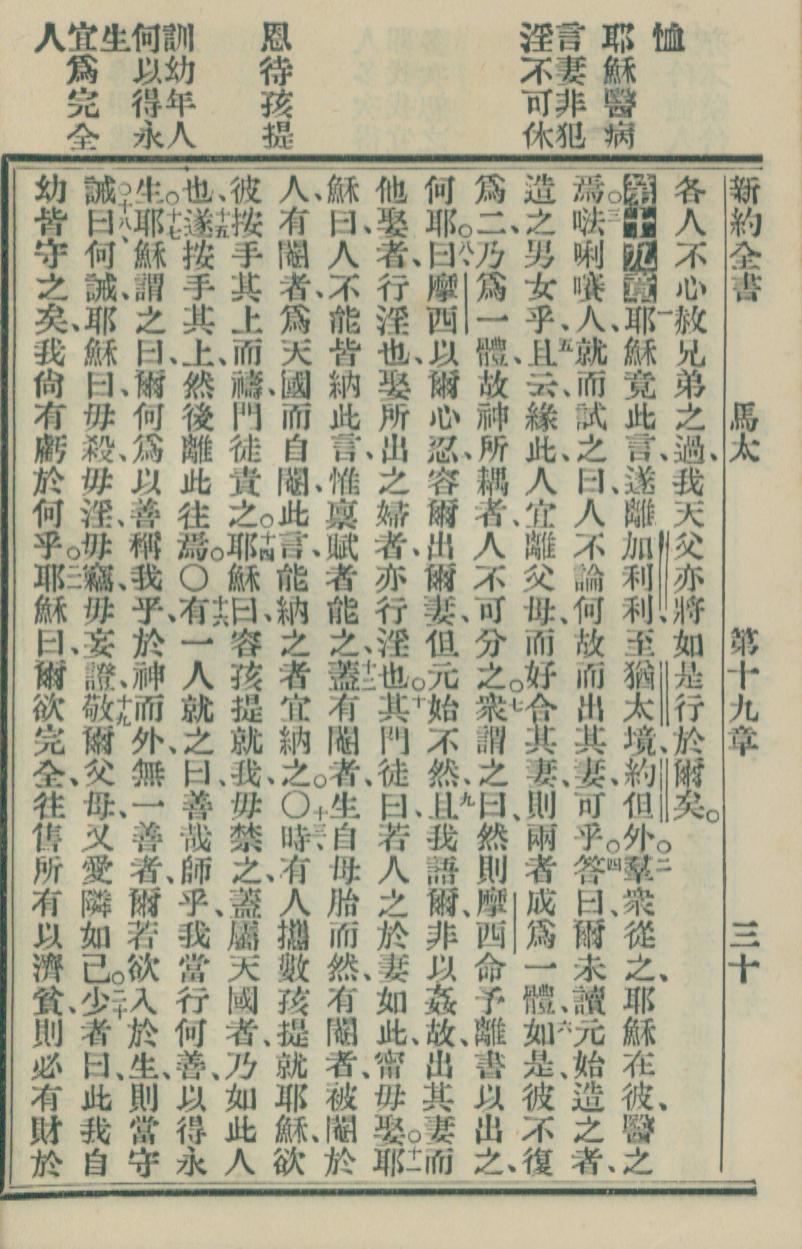 恤
耶穌醫病
言妻非犯
淫不可休
恩待孩提
訓幼年人
何以得永
生
宜爲完全
人
新約全書 馬太 第十九章 三十
各人不心赦兄弟之過、我天父亦將如是行於爾矣。
第十九章一耶穌竟此言、遂離加利利、至猶太境、約但外、○二羣衆從之、耶穌在彼、醫之
焉、○三𠵽唎㘔人、就而試之曰、人不論何故而出其妻、可乎、○四答曰、爾未讀元始造之者、
造之男女乎、五且云、緣此、人宜離父母、而好合其妻、則兩者成爲一體、六如是、彼不復
爲二、乃爲一體、故神所耦者、人不可分之、○七衆謂之曰、然則摩西命予離書以出之、
何耶、○八曰、摩西以爾心忍、容爾出爾妻、但元始不然、九且我語爾、非以姦故、出其妻而
他娶者、行淫也、娶所出之婦者、亦行淫也、○十其門徒曰、若人之於妻如此、甯毋娶、○十一耶
穌曰、人不能皆納此言、惟禀賦者能之、十二蓋有閹者、生自母胎而然、有閹者、被閹於
人、有閹者、爲天國而自閹、此言、能納之者宜納之、○○十三時有人攜數孩提就耶穌、欲
彼按手其上而禱、門徒責之、○十四耶穌曰、容孩提就我、毋禁之、蓋屬天國者、乃如此人
也、十五遂按手其上、然後離此往焉。○十六有一人就之曰、善哉師乎、我當行何善、以得永
生、○十七耶穌謂之曰、爾何爲以善稱我乎、於神而外、無一善者、爾若欲入於生、則當守
誡、○十八曰、何誡、耶穌曰、毋殺、毋淫、毋竊、毋妄證、十九敬爾父母、又愛隣如己、○二十少者曰、此我自
幼皆守之矣、我尙有虧於何乎、○二一耶穌曰、爾欲完全、往售所有以濟貧、則必有財於